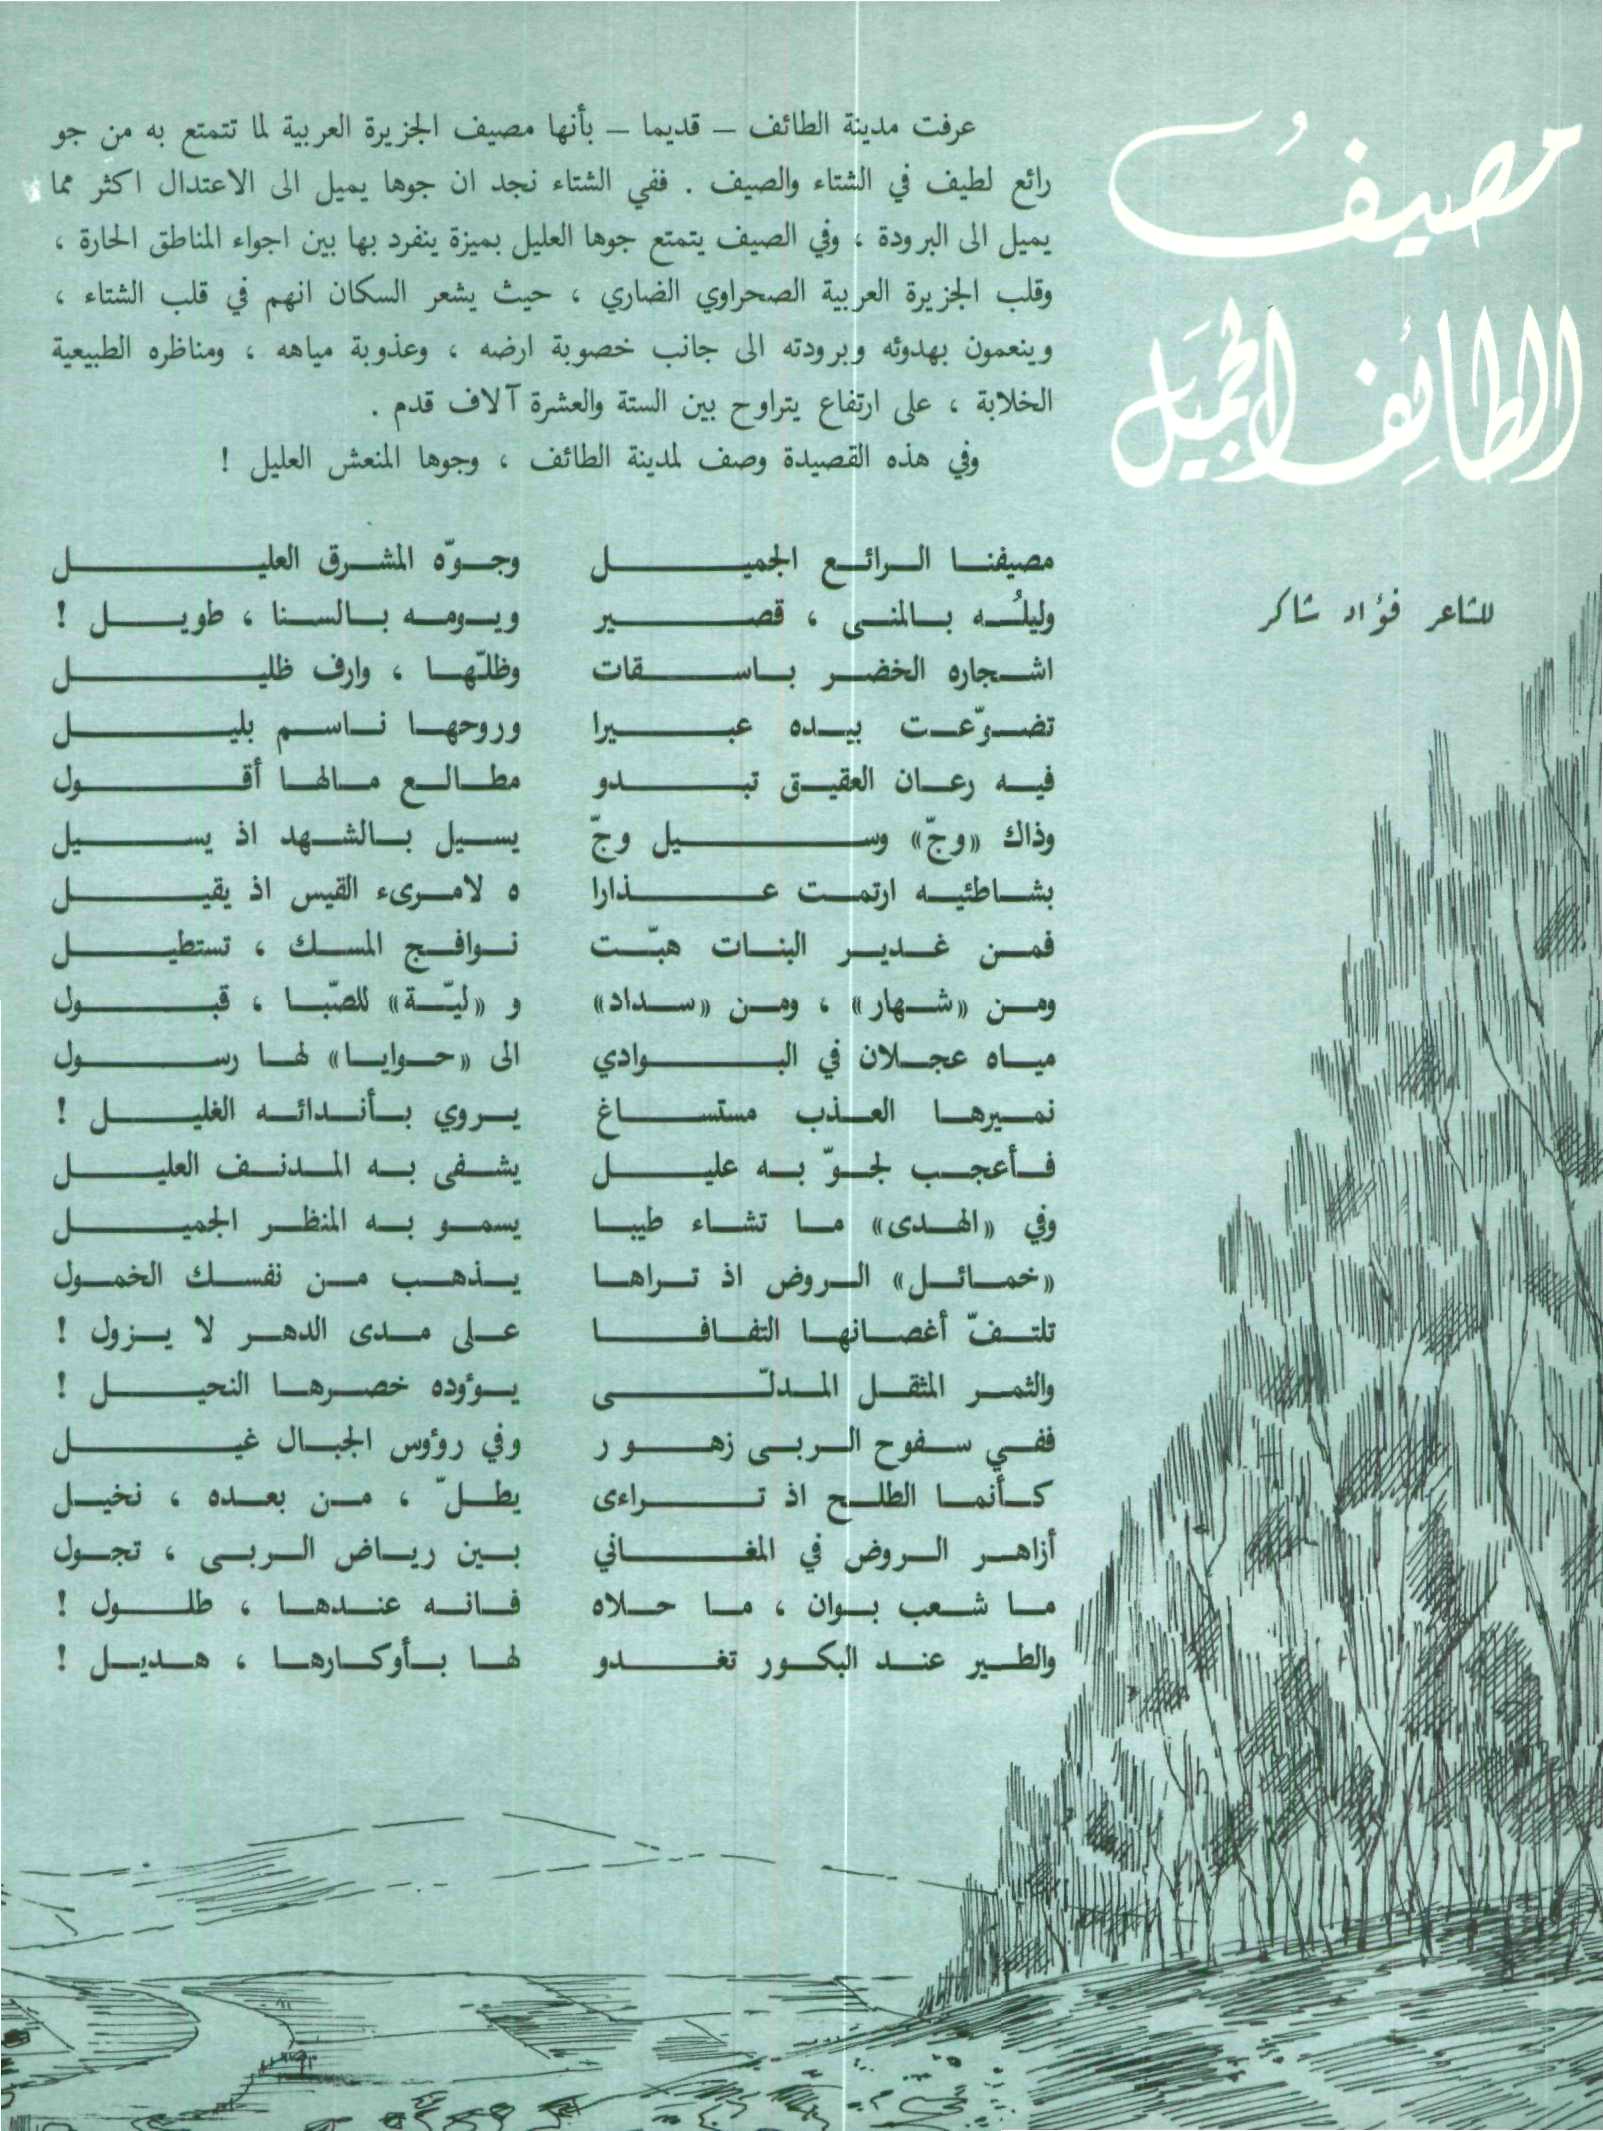 مصيفُ
الطائف الجميل
للشاعر فؤاد شاكر
عرفت مدينة الطائف – قديما – بأنها مصيف الجزيرة العربية لما تتمتع به من جو
رائع لطيف في الشتاء والصيف . ففي الشتاء نجد ان جوها يميل الى الاعتدال اكثر مما
يميل الى البرودة ، وفي الصيف يتمتع جوها العليل بميزة ينفرد بها بين اجواء المناطق الحارة ،
وقلب الجزيرة العربية الصحراوي الضاري ، حيث يشعر السكان انهم في قلب الشتاء ،
وينعمون بهدوئه وبرودته الى جانب خصوبة ارضه ، وعذوبة مياهه ، ومناظره الطبيعية
الخلابة ، على ارتفاع يتراوح بين الستة والعشرة آلاف قدم .
وفي هذه القصيدة وصف لمدينة الطائف ، وجوها المنعش العليل !
مصيفنا الرائع الجميل وجوّه المشرق العليل
وليلُه بالمنى ، قصير ويومه بالسنا ، طويل !
اشجاره الخضر باسقات وظلّها ، وارف ظليل
تضوّعت بيده عبيرا وروحها ناسم بليل
فيه رعان العقيق تبدو مطالع مالها أقول
وذاك «وجّ» وسيل وجّ يسيل بالشهد اذ يسيل
بشاطئيه ارتمت عذارا ه لامرىء القيس اذ يقيل
فمن غدير البنات هبّت نوافج المسك ، تستطيل
ومن «شهار» ، ومن «سداد» و «ليّة» للصّبا ، قبول
مياه عجلان في البوادي الى «حوايا» لها رسول
نميرها العذب مستساغ يروي بأندائه الغليل !
فأعجب لجوّ به عليل يشفى به المدنف العليل
وفي «الهدى» ما تشاء طيبا يسمو به المنظر الجميل
«خمائل» الروض اذ تراها يذهب من نفسك الخمول
تلتفّ أغصانها التفافا على مدى الدهر لا يزول !
والثمر المثقل المدلّى يوؤده خصرها النحيل !
ففي سفوح الربى زهور وفي روؤس الجبال غيل
كأنما الطلح اذ تراءى يطلّ ، من بعده ، نخيل
أزاهر الروض في المغاني بين رياض الربى ، تجول
ما شعب بوان ، ما حلاه فانه عندها ، طلول !
والطير عند البكور تغدو لها بأوكارها ، هديل !